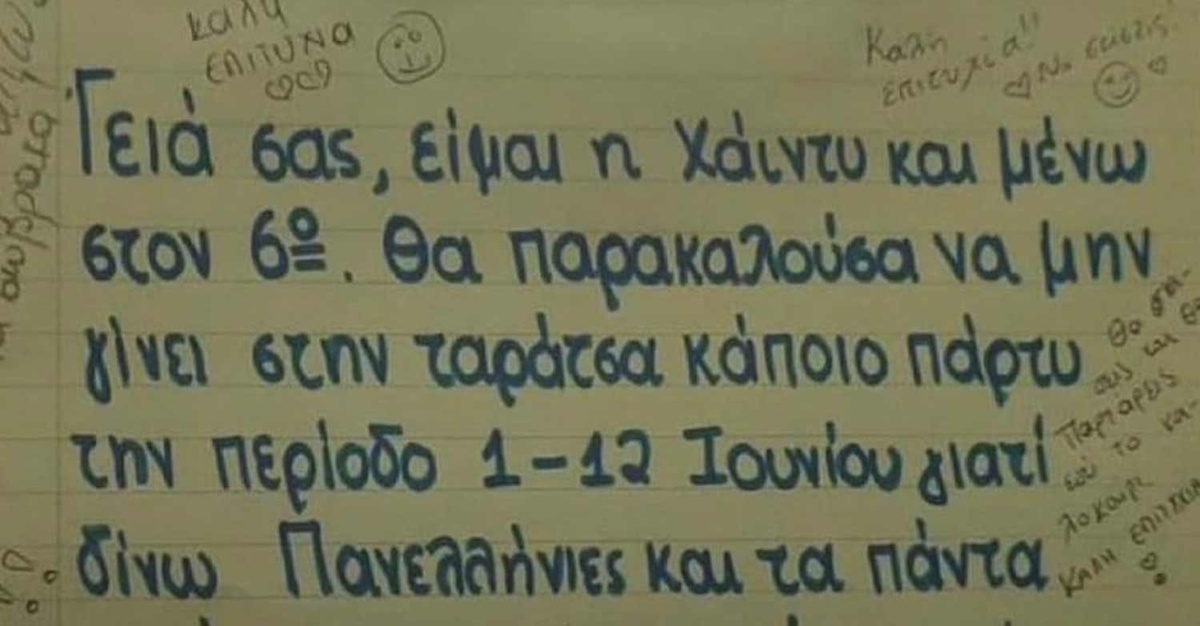 καλή
επιτυχία
Καλή
επιτυχία!!
Να σκίσεις!
Γειά σας, είμαι η Χάιντυ και μένω
στον 6º. Θα παρακαλούσα να μην
γίνει στην ταράτσα κάποιο πάρτυ
την περίοδο 1-12 Ιουνίου γιατί
δίνω Πανελλήνιες και τα πάντα
Θα
και
παρτάρεις
εσύ το κα-
λοκαίρι
ΚΑΛΗ ΕΠΙΤΥΧΙΑ